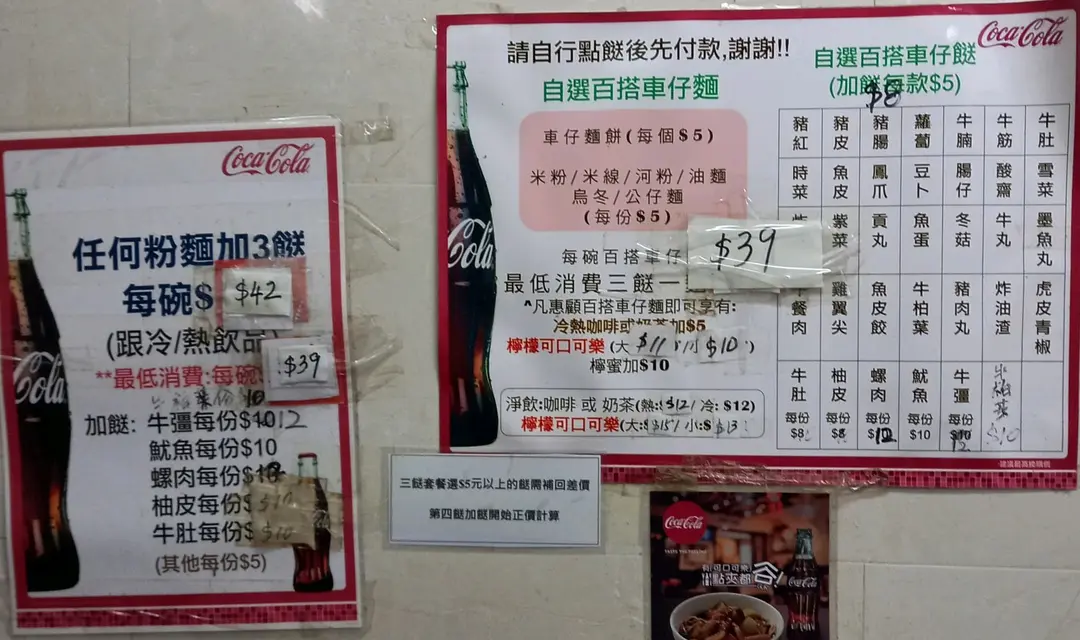 Coca-Cola
任何粉麵加3餸
每碗$ $42
(跟冷/熱飲品
**最低消費:每碗 $39
加餸: 牛彊每份$1012
魷魚每份$10
螺肉每份$
柚皮每份$
牛肚每份$
(其他每份$5)
Cola
請自行點餸後先付款,謝謝!!
自選百搭車仔麵
車仔麵餅(每個$5)
米粉/米線/河粉/油麵
烏冬/公仔麵
(每份$5)
每碗百搭車仔 $39
最低消費三餸一
^凡惠顧百搭車仔麵即可享有:
冷熱咖啡或奶茶加$5
檸檬可口可樂(大 $11 $10)
檸蜜加$10
淨飲:咖啡 或 奶茶(熱:$12/ 冷: $12)
檸檬可口可樂(大:$15/ 小:$13)
Cola
Coca-Cola
自選百搭車仔餸
(加餸每款$5)
$8
豬紅 豬皮 豬腸 蘿蔔 牛腩 牛筋 牛肚
時菜 魚皮 鳳爪 豆卜 腸仔 酸齋 雪菜
紫菜 貢丸 魚蛋 冬菇 牛丸 墨魚丸
餐肉 雞翼尖 魚皮餃 牛柏葉 豬肉丸 炸油渣 虎皮青椒
牛肚 柚皮 螺肉 魷魚 牛彊
每份 每份 每份 每份 每份
$8 $8 $12 $10 $10 $10
12
建議最高繞機低
三餸套餐選$5元以上的餸需補回差價
第四餸加餸開始正價計算
Coca-Cola
有可口可樂
點夾都 啱!
Coca-Cola